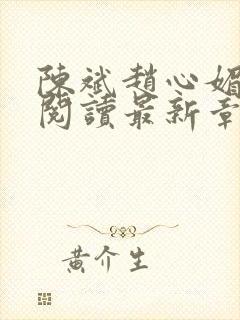 陳斌趙心媚
閱讀最新章
黃介生